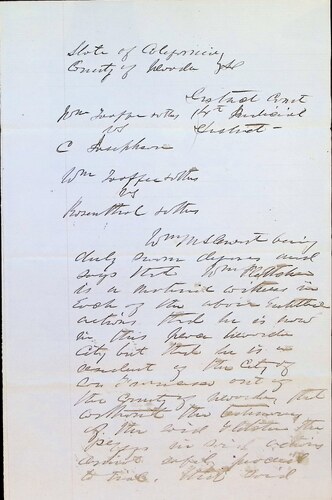 State of California
County of Nevada
District Court
Wm & others 14th Judicial
vs District
C Josephson
Wm & others
vs
Rosenthal & others
Wm M Stewart being
duly sworn deposes and
says that Wm
is a material witness in
Each of the above Entitled
actions that he is now
in this Nevada
City but that he is a
resident of the City of
San Francisco out of
the County of Nevada that
without the testimony
of the said the
in said action
cannot safely proceed
to trial. said